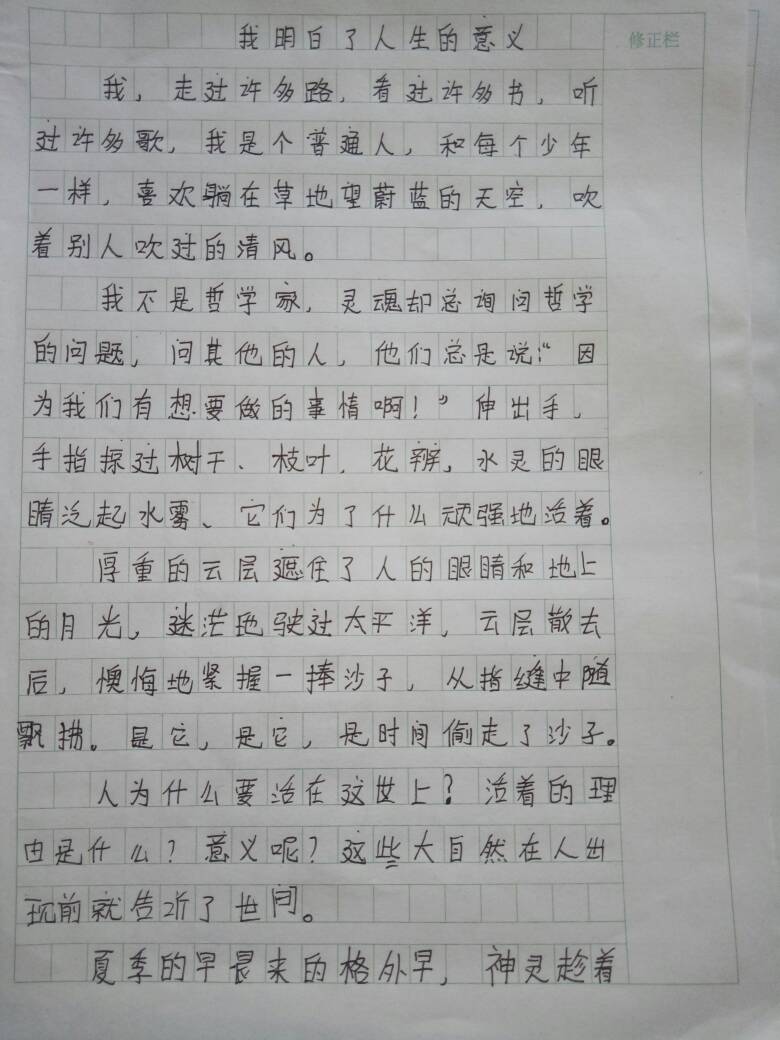 我明白了人生的意义
修正栏
我，走过许多路，看过许多书，听
过许多歌，我是个普通人，和每个少年
一样，喜欢躺在草地望蔚蓝的天空，吹
着别人吹过的清风。
我不是哲学家，灵魂却总询问哲学
的问题，问其他的人，他们总是说：“因
为我们有想要做的事情啊！”伸出手，
手指探过树干、枝叶，花辨，水灵的眼
睛泛起水雾、它们为了什么顽强地活着。
厚重的云层遮住了人的眼睛和地上
的月光，迷茫地驶过太平洋，云层散去
后，懊悔地紧握一捧沙子，从指缝中随
飘拂。是它，是它，是时间偷走了沙子。
人为什么要活在这世上？活着的理
由是什么？意义呢？这些大自然在人出
现前就告诉了世间。
夏季的早晨来的格外早，神灵趁着